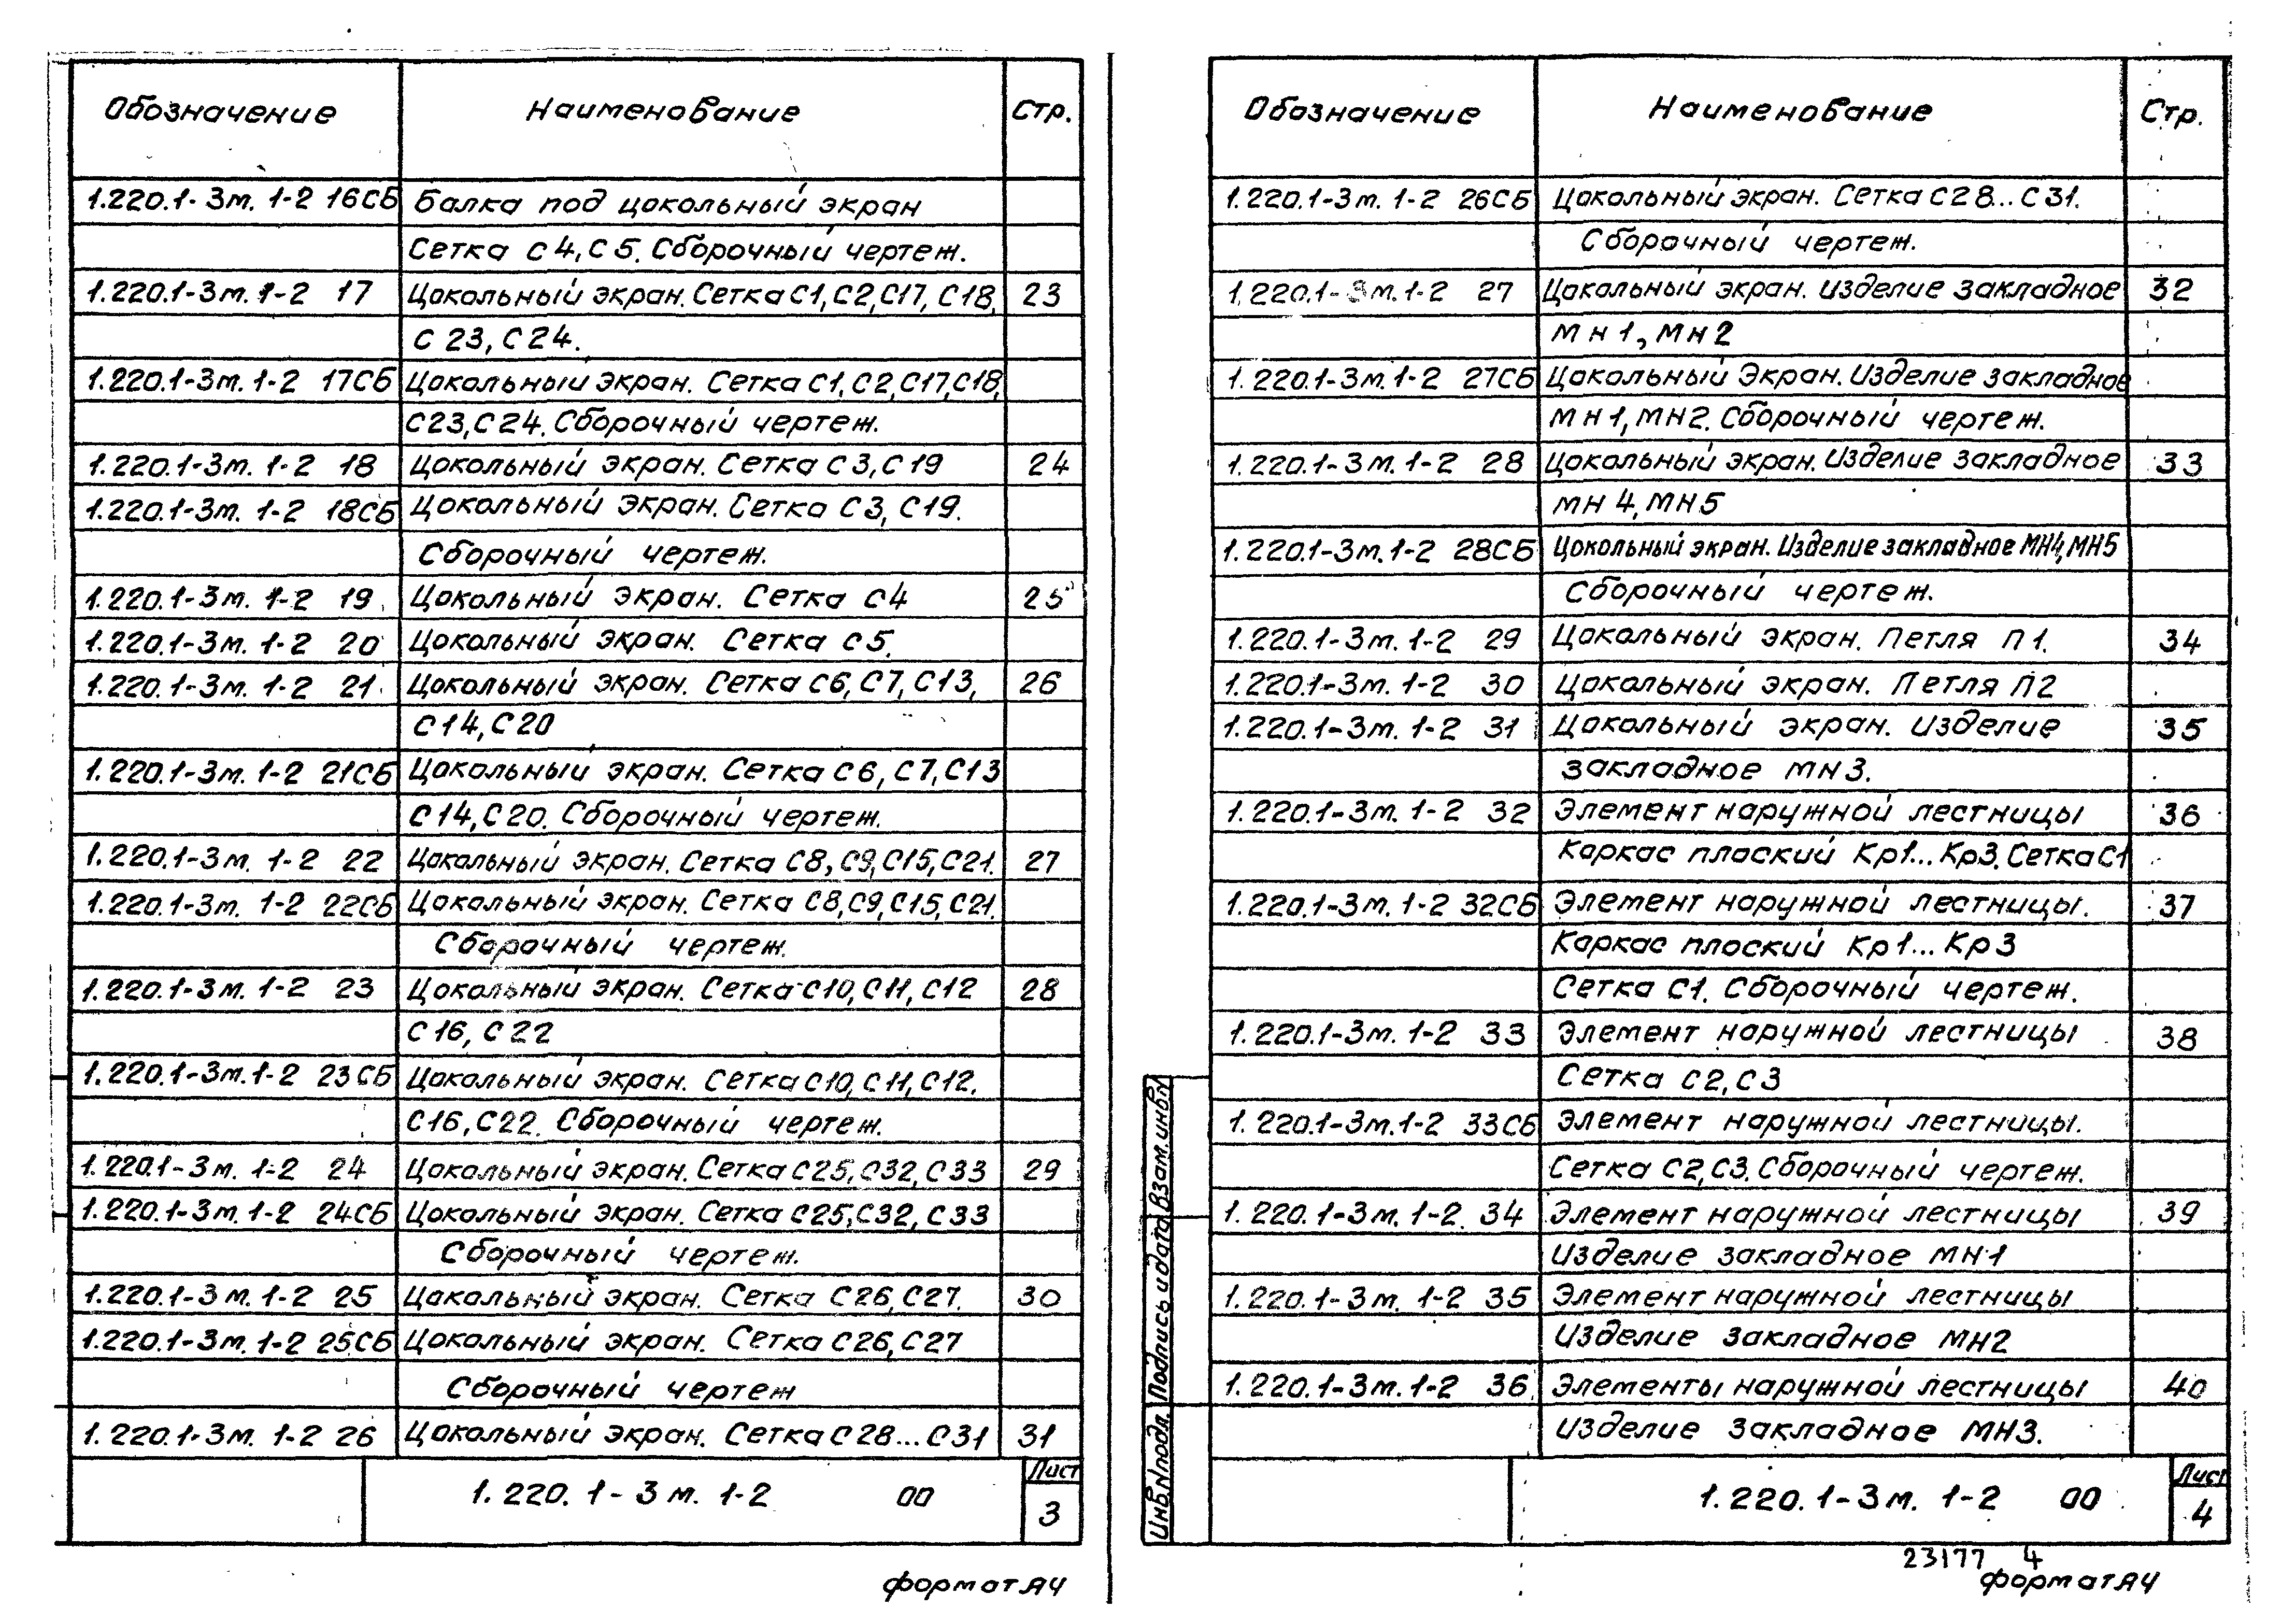 Обозначение Наименование Стр.
1.220.1-3м. 1-2 16СБ Балка под цокольный экран
Сетка С4, С5. Сборочный чертеж.
1.220.1-3м. 1-2 17 Цокольный экран. Сетка С1, С2, С17, С18, 23
С23, С24.
1.220.1-3м. 1-2 17СБ Цокольный экран. Сетка С1, С2, С17, С18,
С23, С24. Сборочный чертеж.
1.220.1-3м. 1-2 18 Цокольный экран. Сетка С3, С19 24
1.220.1-3м. 1-2 18СБ Цокольный экран. Сетка С3, С19.
Сборочный чертеж.
1.220.1-3м. 1-2 19 Цокольный экран. Сетка С4 25
1.220.1-3м. 1-2 20 Цокольный экран. Сетка С5.
1.220.1-3м. 1-2 21 Цокольный экран. Сетка С6, С7, С13, 26
С14, С20
1.220.1-3м. 1-2 21СБ Цокольный экран. Сетка С6, С7, С13
С14, С20. Сборочный чертеж.
1.220.1-3м. 1-2 22 Цокольный экран. Сетка С8, С9, С15, С21. 27
1.220.1-3м. 1-2 22СБ Цокольный экран. Сетка С8, С9, С15, С21.
Сборочный чертеж.
1.220.1-3м. 1-2 23 Цокольный экран. Сетка С10, С11, С12 28
С16, С22
1.220.1-3м. 1-2 23СБ Цокольный экран. Сетка С10, С11, С12.
С16, С22. Сборочный чертеж.
1.220.1-3м. 1-2 24 Цокольный экран. Сетка С25, С32, С33 29
1.220.1-3м. 1-2 24СБ Цокольный экран. Сетка С25, С32, С33
Сборочный чертеж.
1.220.1-3м. 1-2 25 Цокольный экран. Сетка С26, С27. 30
1.220.1-3м. 1-2 25СБ Цокольный экран. Сетка С26, С27
Сборочный чертеж
1.220.1-3м. 1-2 26 Цокольный экран. Сетка С28...С31 31
1.220.1-3м. 1-2 00 Лист
3
формат А4
Обозначение Наименование Стр.
1.220.1-3м. 1-2 26СБ Цокольный экран. Сетка С28...С31.
Сборочный чертеж.
1.220.1-3м. 1-2 27 Цокольный экран. Изделие закладное 32
МН1, МН2
1.220.1-3м. 1-2 27СБ Цокольный Экран. Изделие закладное
МН1, МН2. Сборочный чертеж.
1.220.1-3м. 1-2 28 Цокольный экран. Изделие закладное 33
МН4, МН5
1.220.1-3м. 1-2 28СБ Цокольный экран. Изделие закладное МН4, МН5
Сборочный чертеж.
1.220.1-3м. 1-2 29 Цокольный экран. Петля П1. 34
1.220.1-3м. 1-2 30 Цокольный экран. Петля П2
1.220.1-3м. 1-2 31 Цокольный экран. Изделие 35
закладное МН3.
1.220.1-3м. 1-2 32 Элемент наружной лестницы 36
Каркас плоский Кр1...Кр3. Сетка С1
1.220.1-3м. 1-2 32СБ Элемент наружной лестницы. 37
Каркас плоский Кр1...Кр3
Сетка С1. Сборочный чертеж.
1.220.1-3м. 1-2 33 Элемент наружной лестницы 38
Сетка С2, С3
1.220.1-3м. 1-2 33СБ Элемент наружной лестницы.
Сетка С2, С3. Сборочный чертеж.
1.220.1-3м. 1-2. 34 Элемент наружной лестницы 39
Изделие закладное МН1
1.220.1-3м. 1-2 35 Элемент наружной лестницы
Изделие закладное МН2
1.220.1-3м. 1-2 36 Элементы наружной лестницы 40
Изделие закладное МН3.
Инв.N подл. Подпись и дата Взам.инв.N
1.220.1-3м. 1-2 00 Лист
4
23177 4
формат А4